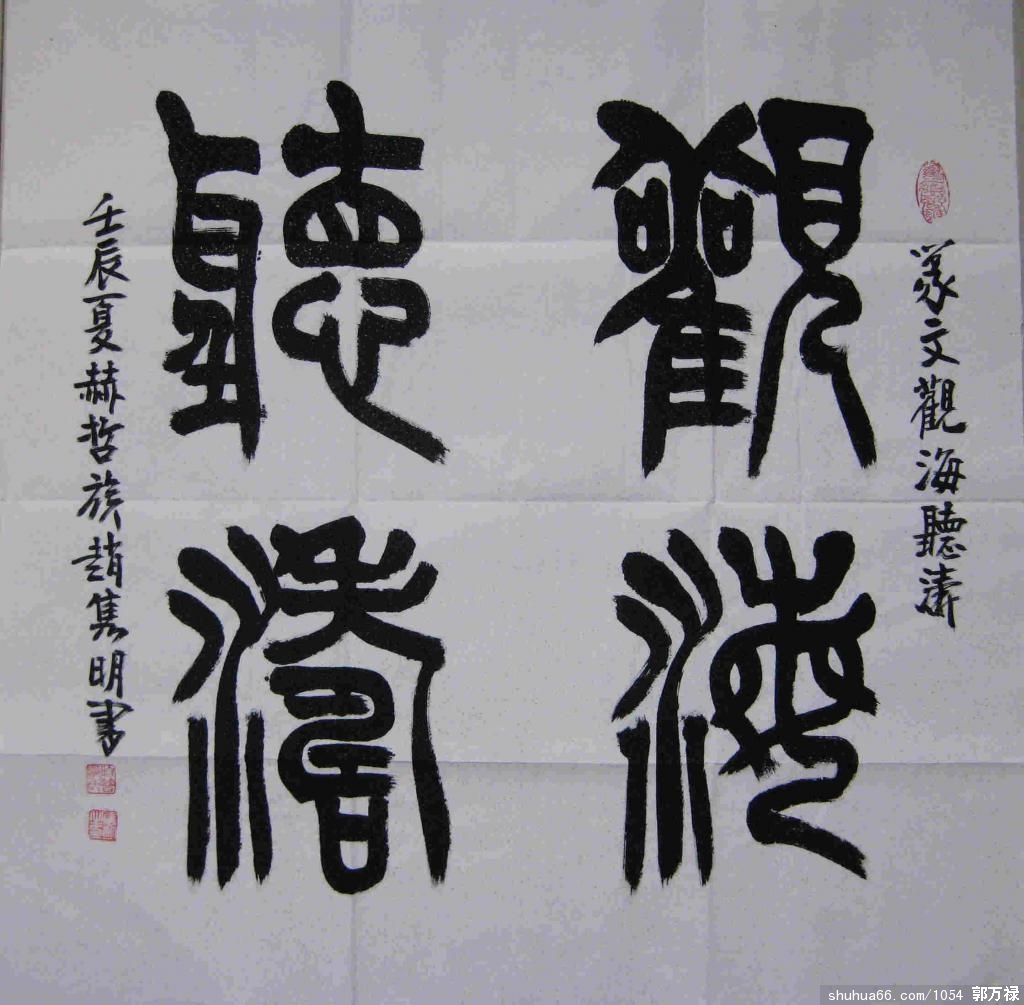 篆文觀海聽濤
觀海
聽濤
壬辰夏赫哲族趙雋明書
shuhua66.com/1054 郭万禄